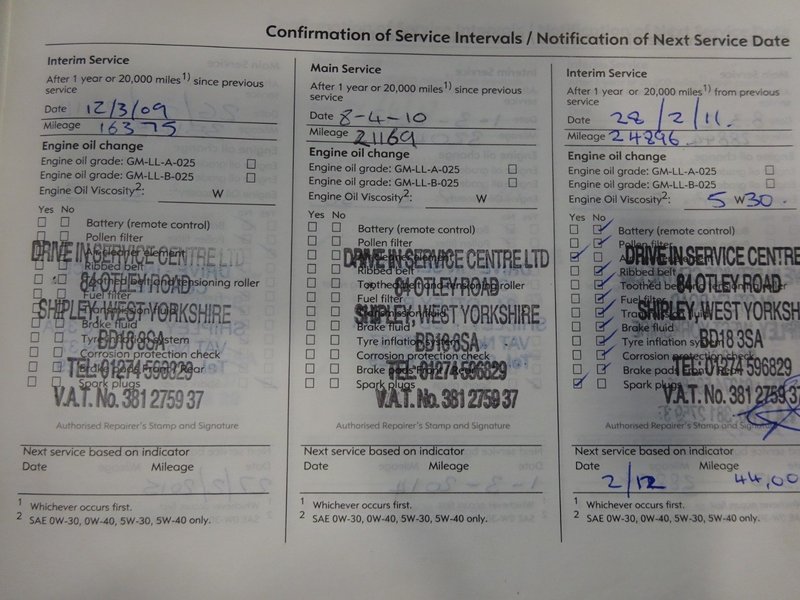 Confirmation of Service Intervals / Notification of Next Service Date
Interim Service
After 1 year or 20,000 miles1) since previous
service
Date 12/3/09
Mileage 16375
Engine oil change
Engine oil grade: GM-LL-A-025
Engine oil grade: GM-LL-B-025
Engine Oil Viscosity2: W
Yes No
Battery (remote control)
Pollen filter
DRIVE IN SERVICE CENTRE LTD
Ribbed belt
84 OTLEY ROAD
Fuel filter
SHIPLEY, WEST YORKSHIRE
Brake fluid
BD18 3SA
Corrosion protection check
TEL: 01274 596829
Spark plugs
V.A.T. No. 381 2759 37
Authorised Repairer's Stamp and Signature
Next service based on indicator
Date Mileage
1 Whichever occurs first.
2 SAE 0W-30, 0W-40, 5W-30, 5W-40 only.
Main Service
After 1 year or 20,000 miles1) since previous
service
Date 8-4-10
Mileage 21169
Engine oil change
Engine oil grade: GM-LL-A-025
Engine oil grade: GM-LL-B-025
Engine Oil Viscosity2: W
Yes No
Battery (remote control)
Pollen filter
DRIVE IN SERVICE CENTRE LTD
Ribbed belt
Toothed belt and tensioning roller
84 OTLEY ROAD
Fuel filter
SHIPLEY, WEST YORKSHIRE
Brake fluid
Tyre inflation system
BD18 3SA
Corrosion protection check
Brake pads Front Rear
TEL: 01274 596829
Spark plugs
V.A.T. No. 381 2759 37
Authorised Repairer's Stamp and Signature
Next service based on indicator
Date Mileage
1 Whichever occurs first.
2 SAE 0W-30, 0W-40, 5W-30, 5W-40 only.
Interim Service
After 1 year or 20,000 miles1) from previous
service
Date 28/2/11.
Mileage 24896.
Engine oil change
Engine oil grade: GM-LL-A-025
Engine oil grade: GM-LL-B-025
Engine Oil Viscosity2: 5 W 30.
Yes No
Battery (remote control)
Pollen filter
DRIVE IN SERVICE CENTRE
Ribbed belt
84 OTLEY ROAD
Fuel filter
SHIPLEY, WEST YORKSH
Brake fluid
Tyre inflation system
BD18 3SA
Corrosion protection check
TEL: 01274 596829
Spark plugs
V.A.T. No. 381 2759 37
Authorised Repairer's Stamp and Signature
Next service based on indicator
Date Mileage
2/12 44,00
1 Whichever occurs first.
2 SAE 0W-30, 0W-40, 5W-30, 5W-40 only.